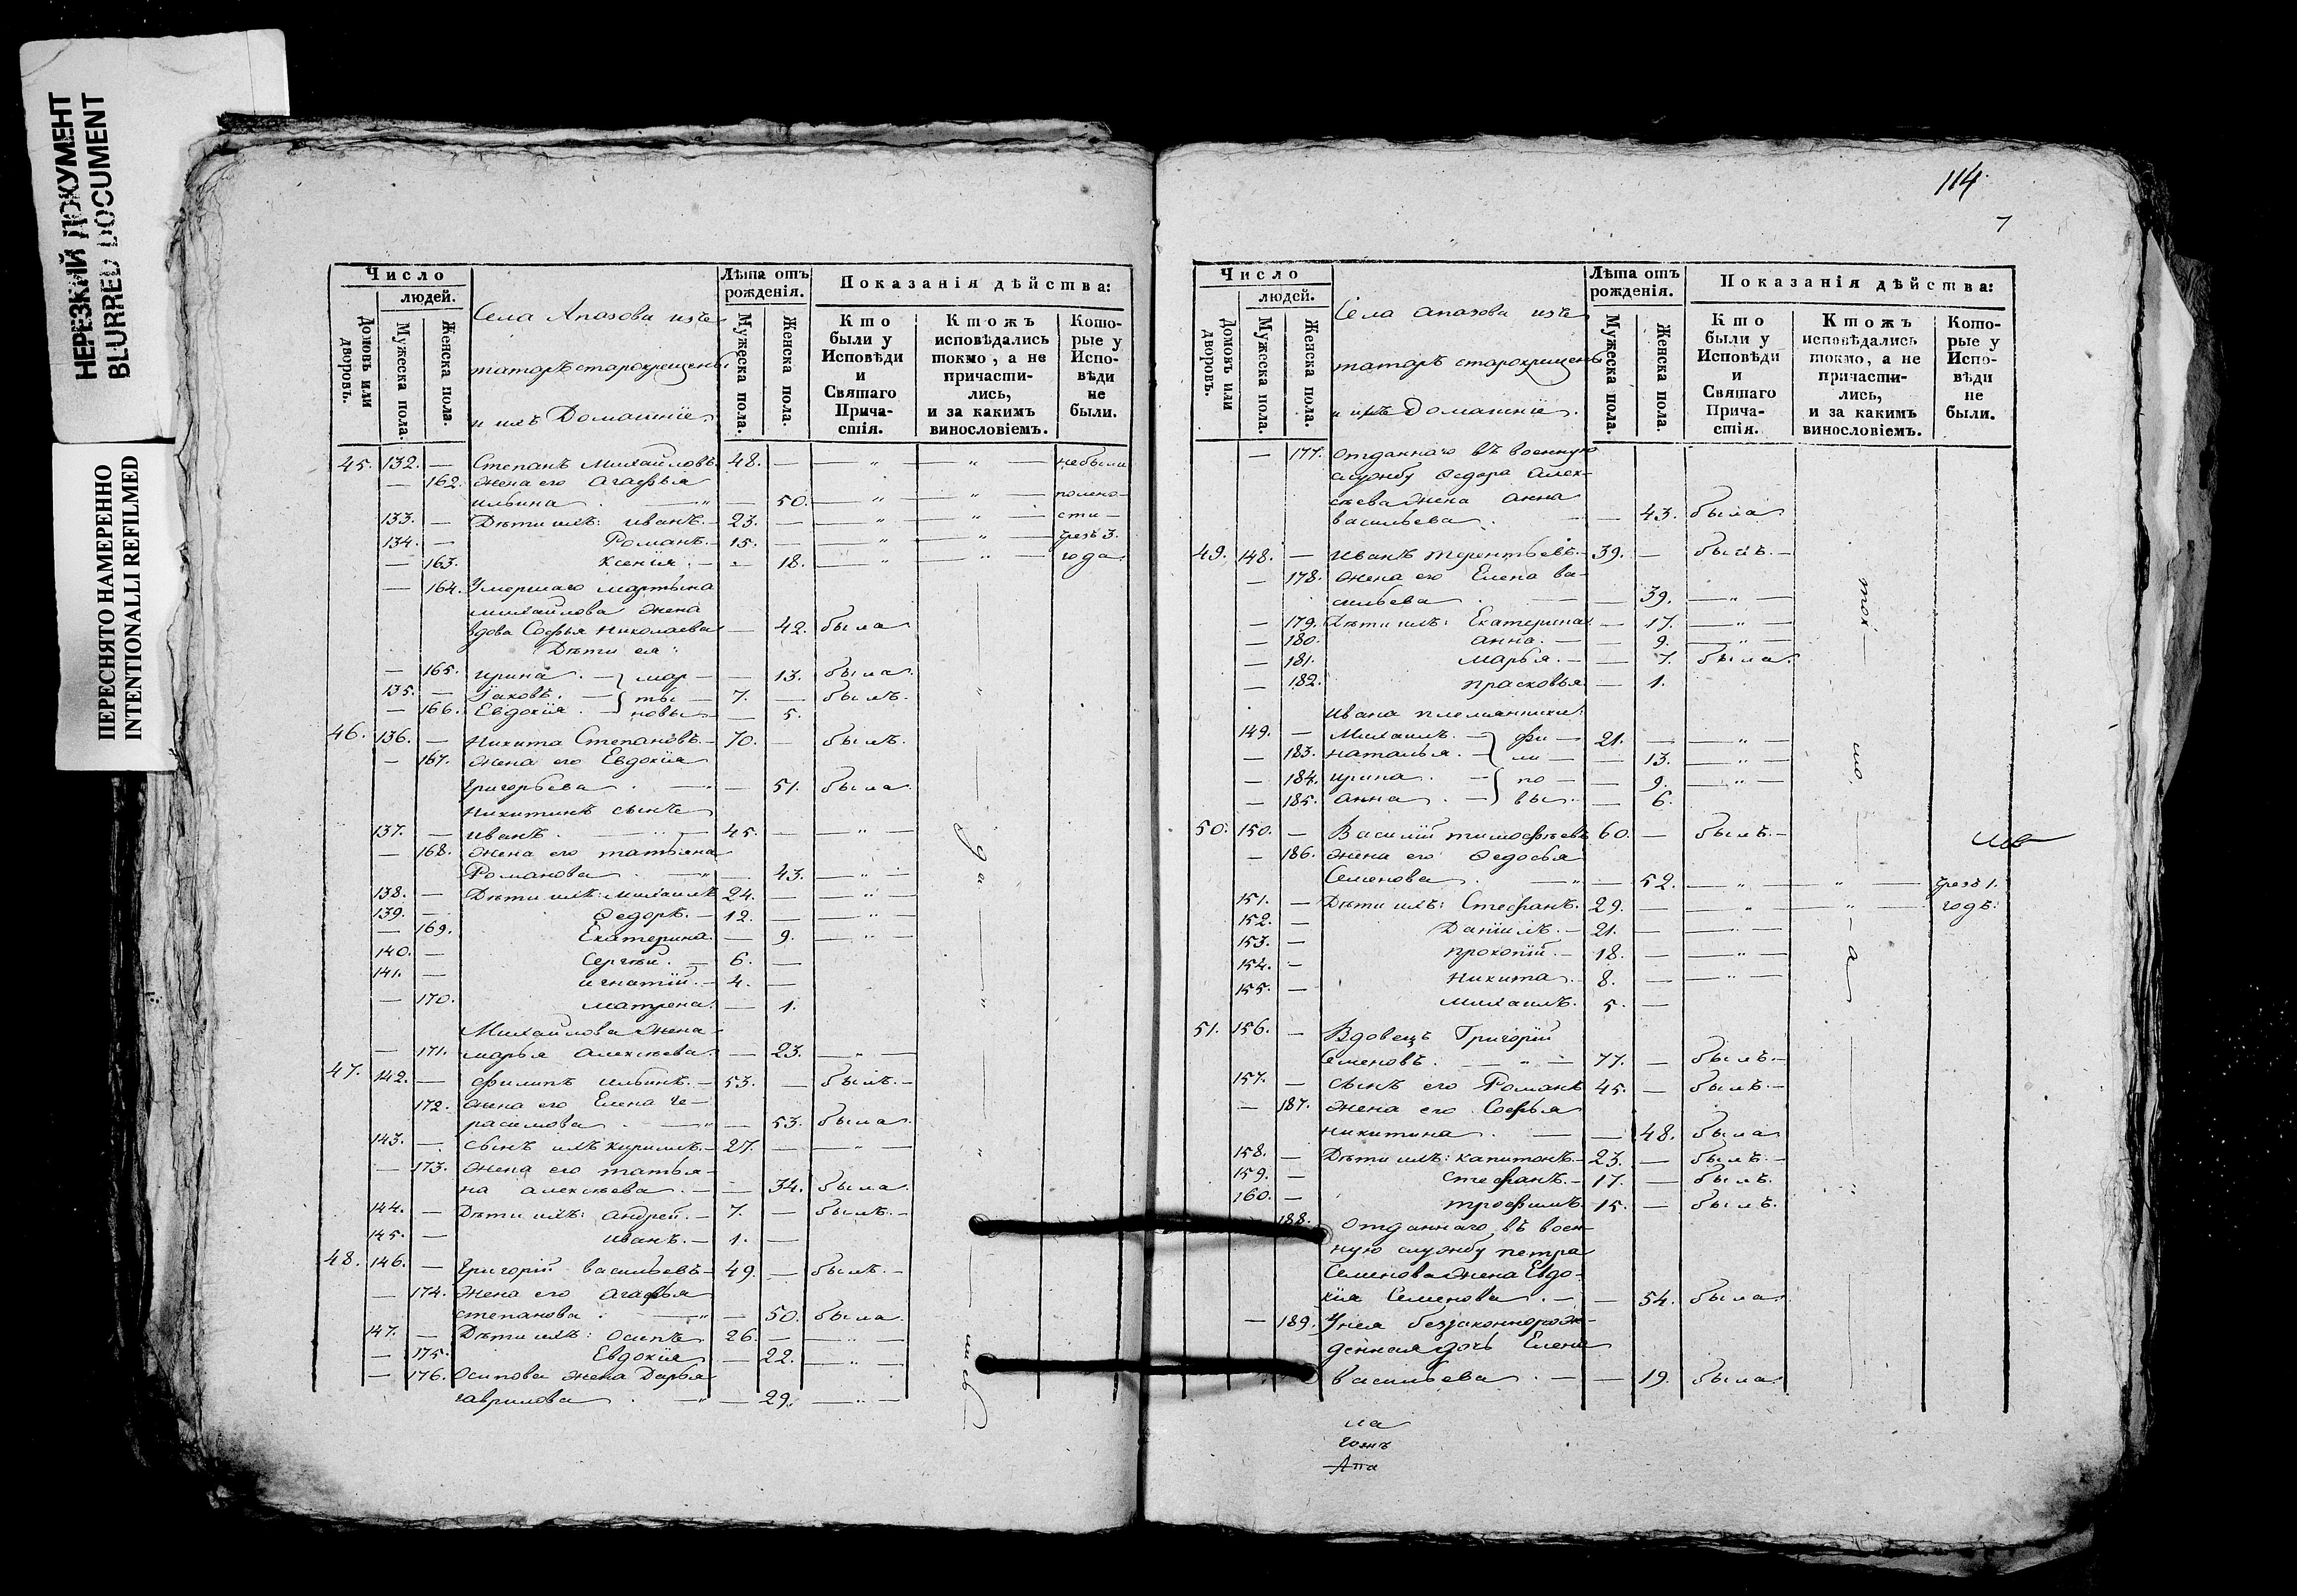 НЕРЕЗКИЙ ДОКУМЕНТ
BLURRED DOCUMENT
ПЕРЕСНЯТО НАМЕРЕННО
INTENTIONALLI REFILMED
Число
людей.
Домовъ или дворовъ.
Мужеска пола.
Женска пола.
Села Апазова изъ
татаръ старокрещенъ
и ихъ Домашніе
Лѣта отъ рожденія.
Мужеска пола.
Женска пола.
Показанія дѣйства:
Кто были у Исповѣди и Святаго Причастія.
Ктожъ исповѣдались токмо, а не причастились, и за какимъ винословіемъ.
Которые у Исповѣди не были.
45. 132. — Степанъ Михайловъ. 48. — — „ — „ — небыли
— 162. жена его Агафья
ильина . — „ — 50. — „ — „ — полено-
133. — Дѣти ихъ: иванъ. — 23. — — „ — „ — сти —
134. — Романъ. — 15. — — „ — „ — чрезъ 3.
— 163. Ксенія. — — 18. — „ — „ — года.
— 164. Умершаго мартына
михайлова жена
вдова Софья Николаева — 42. была
Дѣти ея:
— 165. ирина. — } мар — — 13. была.
135. — Іаковъ. — } ты — 7. — былъ.
— 166. Евдокія. — } новы — — 5.
46. 136. — Никита Степановъ. — 70. — былъ.
— 167. жена его Евдокія
григорьева . — — 51. была.
никитинъ сынъ
137. — иванъ. — „ — 45. — — „ —
— 168. жена его татьяна
Романова . — „ — 43. — „ —
138. — Дѣти ихъ: михаилъ 24. — — „ —
139. — Ѳедоръ. — 12. — — „ —
— 169. Екатерина. — 9. — „ —
140. — Сергѣй. — 6. —
141. — игнатій. — 4. —
— 170. матрена. — 1.
Михайлова жена
— 171. марья алексѣева. — 23. — „ —
47. 142. — филипъ ильинъ. — 53. — былъ. —
172. жена его Елена Ге—
расимова . — „ — 53. была.
143. — сынъ ихъ кирилъ. — 27. — — „ —
— 173. жена его татья-
на алексѣева. — — 34. была.
144. — Дѣти ихъ: андрей. — 7. — былъ. —
145. — иванъ. — 1. —
48. 146. — григорій васильевъ — 49. — былъ. —
— 174. жена его агафья
степанова . — „ — 50. была.
147. — Дѣти ихъ: осипъ 26. — — „ —
— 175. Евдокія — 22. — „ —
— 176. Осипова жена Дарья
гаврилова . — „ — 29. — „ —
114
7
Число
людей.
Домовъ или дворовъ.
Мужеска пола.
Женска пола.
Села апазова изъ
татаръ старокрещенъ
и ихъ домашніе.
Лѣта отъ рожденія.
Мужеска пола.
Женска пола.
Показанія дѣйства:
Кто были у Исповѣди и Святаго Причастія.
Ктожъ исповѣдались токмо, а не причастились, и за какимъ винословіемъ.
Которые у Исповѣди не были.
— 177. отданнаго въ военную
службу Ѳедора Алек-
сѣева жена анна
васильева . — — 43. была.
49. 148. — иванъ терентьевъ. — 39. — былъ. —
— 178. жена его Елена ва—
сильева . — — 39. — „ —
— 179. Дѣти ихъ: Екатерина. — 17. — „ —
— 180. анна. — — 9. — „ —
— 181. марья. — — 7. была.
— 182. прасковья — 1.
ивана племянники:
149. — Михаилъ. — } фи — 21. — — „ —
— 183. наталья. — } ли — — 13. — „ —
— 184. ирина. — } по — — 9. — „ —
— 185. анна. — } вы. — 6.
50. 150. — Василій тимофѣевъ 60. — былъ. —
— 186. жена его Ѳедосья
Семенова . — „ — 52. — „ — „ — чрезъ 1.
151. — Дѣти ихъ: Стефанъ. 29. — — „ — „ — годъ.
152. — Даніилъ. — 21. — — „ —
153. — прокопій. — 18. — — „ —
154. — никита. 8. — — „ —
155. — михаилъ. 5. —
51. 156. — Вдовецъ Григорій
Семеновъ. — „ — 77. — былъ. —
157. — сынъ его Романъ 45. — былъ. —
— 187. жена его Софья
никитина . — — 48. была
158. — Дѣти ихъ: капитонъ. — 23. — былъ. —
159. — стефанъ. — 17. — былъ.
160. — трофимъ. 15. — былъ.
188. отданнаго въ воен-
ную службу петра
Семенова жена Евдо-
кія Семенова . — — 54. была.
— 189. У нея беззаконнорож-
денная дочь Елена
васильева . — — 19. была.
Апа